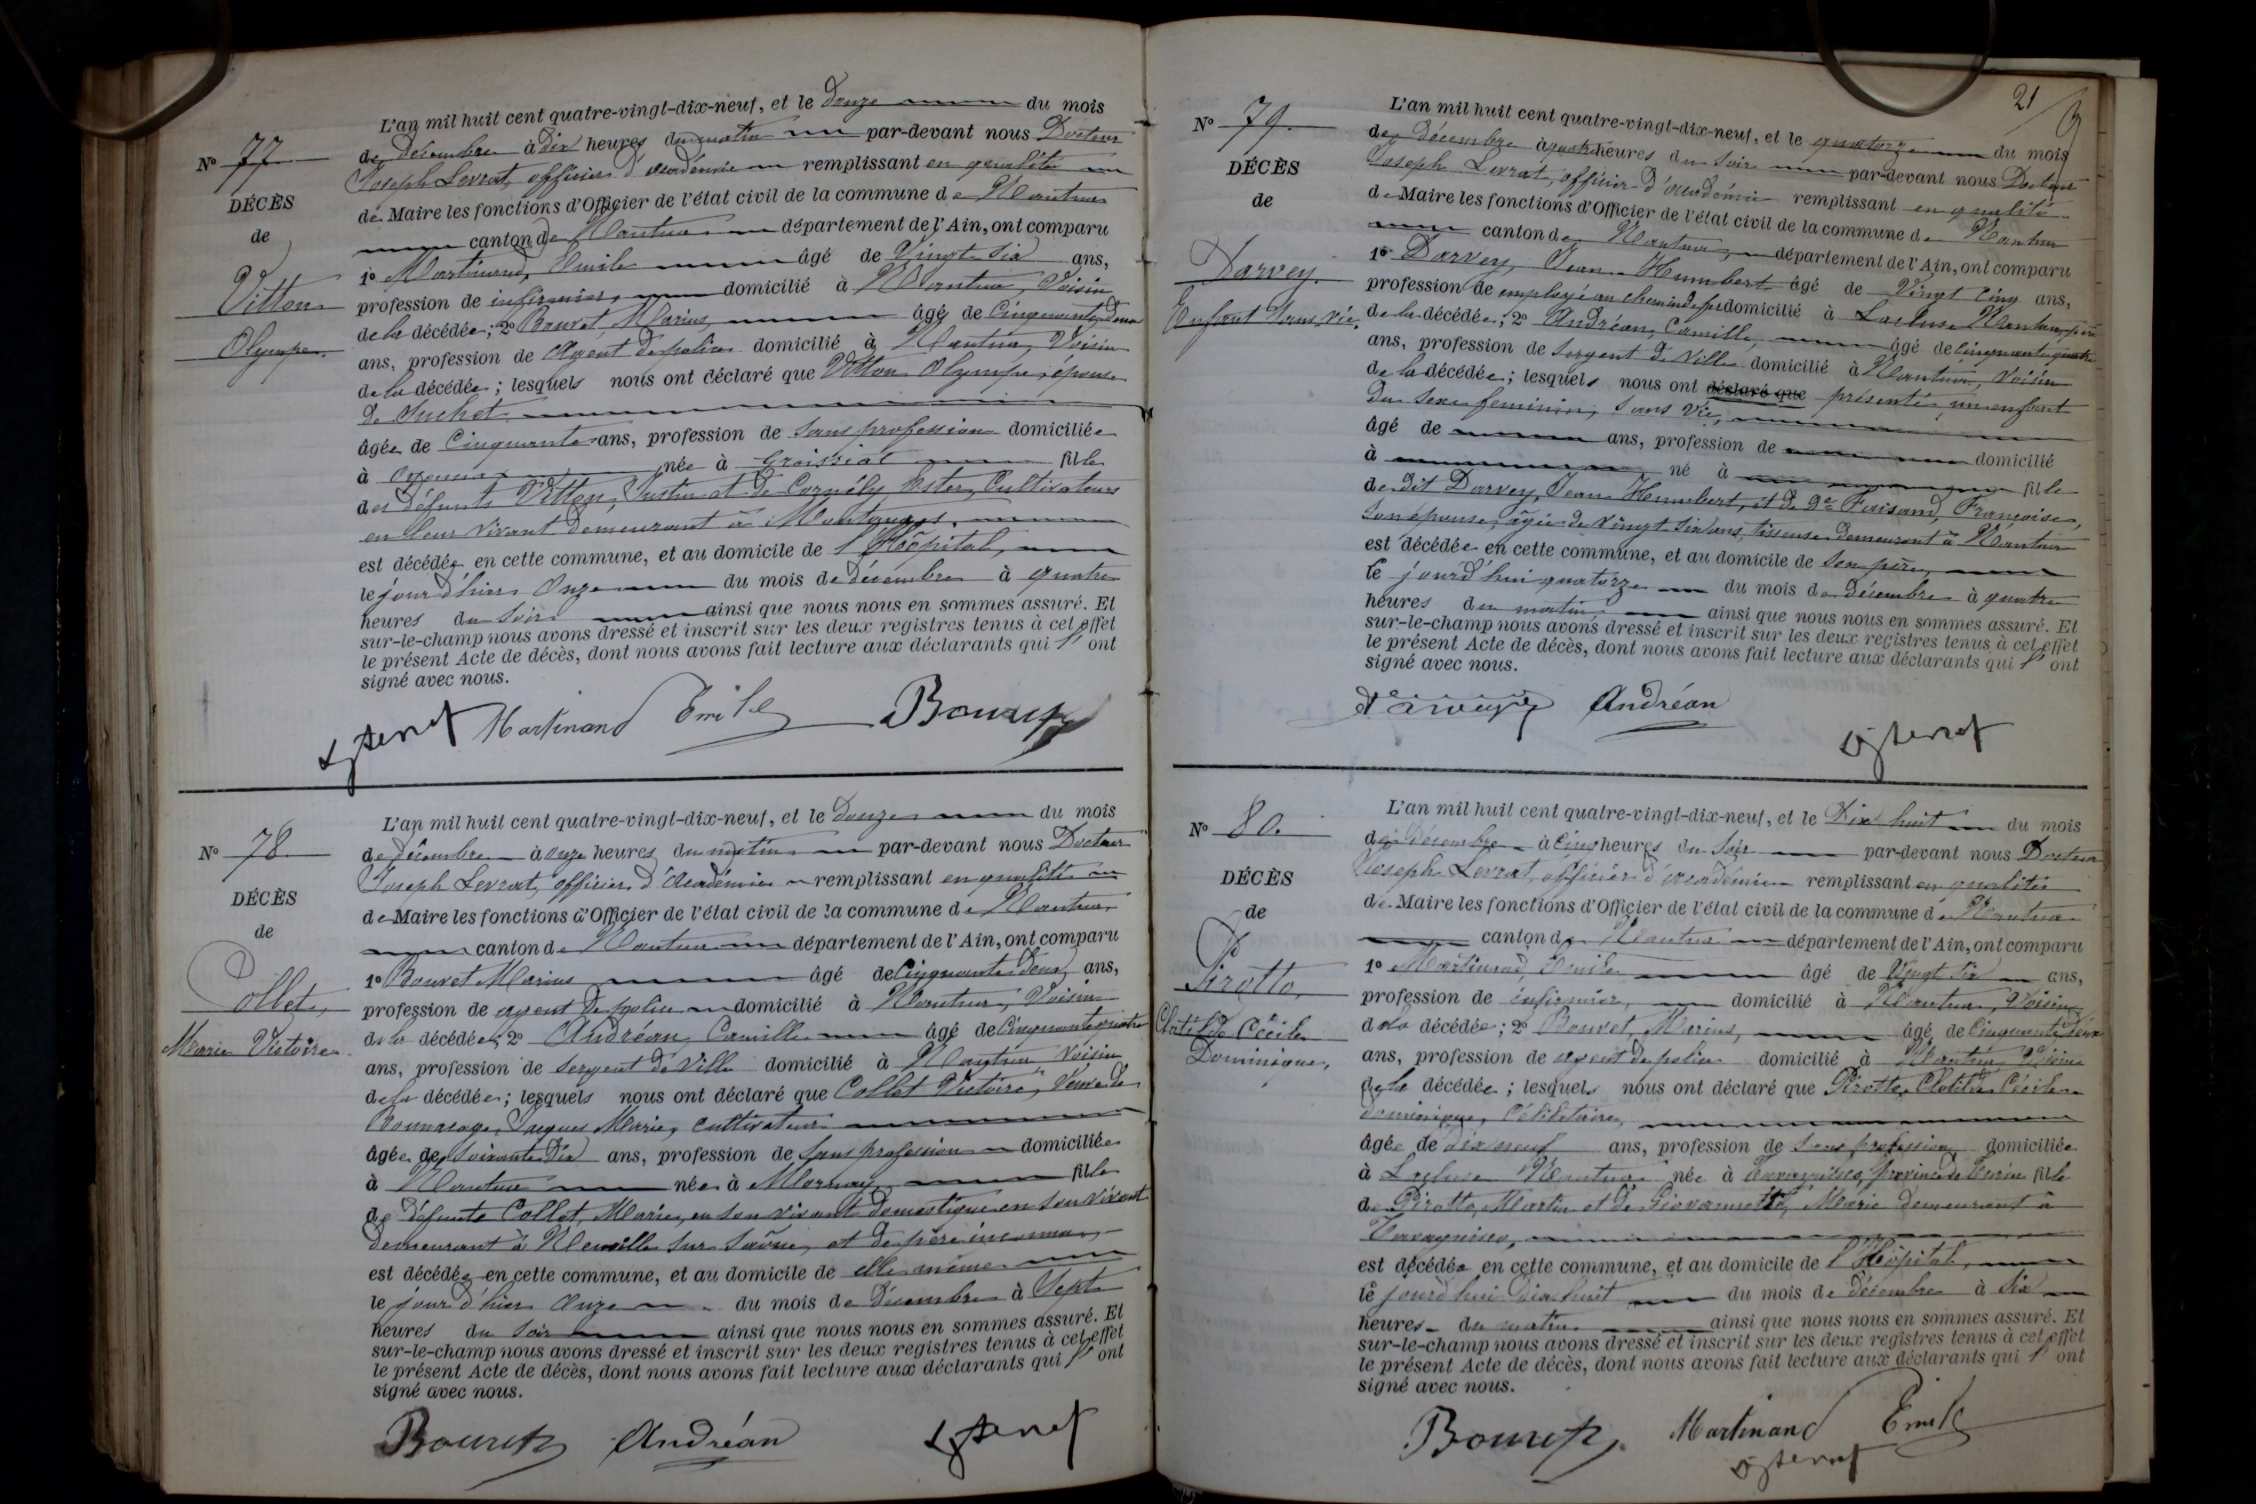 L'an mil huit cent quatre-vingt-dix-neuf, et le Douze du mois
N° 77
de décembre à dix heures du matin par-devant nous Docteur
Joseph Levrat, officier d'académie remplissant en qualité
DÉCÈS
de Maire les fonctions d'Officier de l'état civil de la commune de Nantua
de
canton de Nantua département de l'Ain, ont comparu
1° Martinand, Emile âgé de Vingt Six ans,
Vitton
profession de infirmier, domicilié à Nantua, Voisin
de la décédée; 2° Bouvet, Marius, âgé de Cinquante deux
Olympe.
ans, profession de Agent de police domicilié à Nantua, Voisin
de la décédée; lesquels nous ont déclaré que Vitton Olympe, épouse
de Suchet
âgée de Cinquante ans, profession de Sans profession domiciliée
à Oyonnax née à Groissiat fille
des défunts Vitton, Justin et de Cornély, Ester, Cultivateurs
en leur vivant demeurant à
est décédée en cette commune, et au domicile de l'Hôpital,
le jour d'hier Onze du mois de décembre à quatre
heures du Soir ainsi que nous nous en sommes assuré. Et
sur-le-champ nous avons dressé et inscrit sur les deux registres tenus à cet effet
le présent Acte de décès, dont nous avons fait lecture aux déclarants qui l' ont
signé avec nous.
Martinand Emile Bouvet
L'an mil huit cent quatre-vingt-dix-neuf, et le Douze du mois
N° 78
de décembre à onze heures du matin par-devant nous Docteur
Joseph Levrat, officier d'Académie remplissant en qualité
DÉCÈS
de Maire les fonctions d'Officier de l'état civil de la commune de Nantua
de
canton de Nantua département de l'Ain, ont comparu
1° Bouvet Marius âgé de Cinquante Deux ans,
Collet,
profession de agent de police domicilié à Nantua, Voisin
Marie Victoire
de la décédée; 2° Andréan, Camille âgé de Cinquante quatre
ans, profession de Sergent de Ville domicilié à Nantua Voisin
de la décédée; lesquels nous ont déclaré que Collet Victoire, Veuve de
Jacques Marie, cultivateur
âgée de Soixante Dix ans, profession de Sans profession domiciliée
à Nantua née à Mornay fille
de défunte Collet, Marie, en son vivant domestique en son vivant
demeurant à Neuville sur Saône, et de père inconnu,
est décédée en cette commune, et au domicile de elle même
le jour d'hier Onze du mois de Décembre à Sept
heures du Soir ainsi que nous nous en sommes assuré. Et
sur-le-champ nous avons dressé et inscrit sur les deux registres tenus à cet effet
le présent Acte de décès, dont nous avons fait lecture aux déclarants qui l' ont
signé avec nous.
Bouvet Andréan
21
L'an mil huit cent quatre-vingt-dix-neuf, et le quatorze du mois
N° 79.
de décembre à quatre heures du Soir par-devant nous Docteur
DÉCÈS
Joseph Levrat, officier d'académie remplissant en qualité
de
de Maire les fonctions d'Officier de l'état civil de la commune de Nantua
canton de Nantua, département de l'Ain, ont comparu
Darvey.
1° Darvey, Jean Humbert âgé de Vingt Cinq ans,
profession de employé au chemin de fer domicilié à Lacluse Nantua, père
Enfant Sans vie.
de la décédée; 2° Andréan, Camille, âgé de Cinquante quatre
ans, profession de Sergent de Ville domicilié à Nantua, Voisin
de la décédée; lesquels nous ont déclaré que présenté un enfant
du Sexe feminin, Sans vie,
âgé de ans, profession de domicilié
à né à fille
de dit Darvey, Jean Humbert, et de De Françoise,
Son épouse, âgée de Vingt Six ans, tisseuse demeurant à Nantua
est décédée en cette commune, et au domicile de Son père,
le jourd'hui quatorze du mois de Décembre à quatre
heures du matin ainsi que nous nous en sommes assuré. Et
sur-le-champ nous avons dressé et inscrit sur les deux registres tenus à cet effet
le présent Acte de décès, dont nous avons fait lecture aux déclarants qui l' ont
signé avec nous.
Andréan
L'an mil huit cent quatre-vingt-dix-neuf, et le Dix huit du mois
N° 80.
de Décembre à Cinq heures du Soir par-devant nous Docteur
DÉCÈS
Joseph Levrat, officier d'académie remplissant en qualité
de
de Maire les fonctions d'Officier de l'état civil de la commune de Nantua
canton de Nantua département de l'Ain, ont comparu
Pirotto,
1° Martinand, Emile âgé de Vingt Six ans,
profession de infirmier, domicilié à Nantua, Voisin
Clotilde Cécile
de la décédée; 2° Bouvet, Marius, âgé de Cinquante Deux
Dominique,
ans, profession de agent de police domicilié à Nantua Voisin
de la décédée; lesquels nous ont déclaré que Pirotto, Clotilde Cécile
Dominique, Célibataire,
âgée de dix neuf ans, profession de Sans profession domiciliée
à Lacluse Nantua née à province de Turin fille
de Pirotto, Martin et de Marie demeurant à
est décédée en cette commune, et au domicile de l'Hôpital,
le jourd'hui Dix huit du mois de décembre à Six
heures du matin ainsi que nous nous en sommes assuré. Et
sur-le-champ nous avons dressé et inscrit sur les deux registres tenus à cet effet
le présent Acte de décès, dont nous avons fait lecture aux déclarants qui l' ont
signé avec nous.
Bouvet Martinand Emile